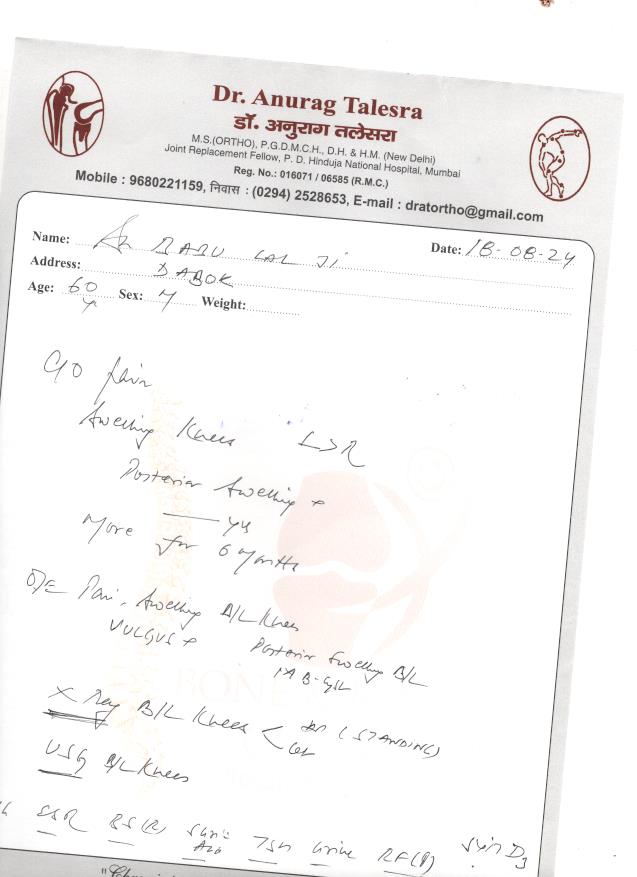 Dr. Anurag Talesra
डॉ. अनुराग तलेसरा
M.S.(ORTHO), P.G.D.M.C.H., D.H. & H.M. (New Delhi)
Joint Replacement Fellow, P. D. Hinduja National Hospital, Mumbai
Reg. No.: 016071 / 06585 (R.M.C.)
Mobile : 9680221159, निवास : (0294) 2528653, E-mail : dratortho@gmail.com
Name: BABU LAL JI Date: 18-08-24
Address: DABOK
Age: 60 Sex: M Weight:
yr
C/O Pain
Swelling Knees L>R
Posterior Swelling +
yrs
More for 6 months
O/E Pain, Swelling B/L Knees
VULGUS + Posterior Swelling B/L
X Ray B/L Knees < (STANDING)
Lat
USG B/L Knees
ESR BS(R) Uric TSH Urine RF(P) Vit D3
Acid
BONE